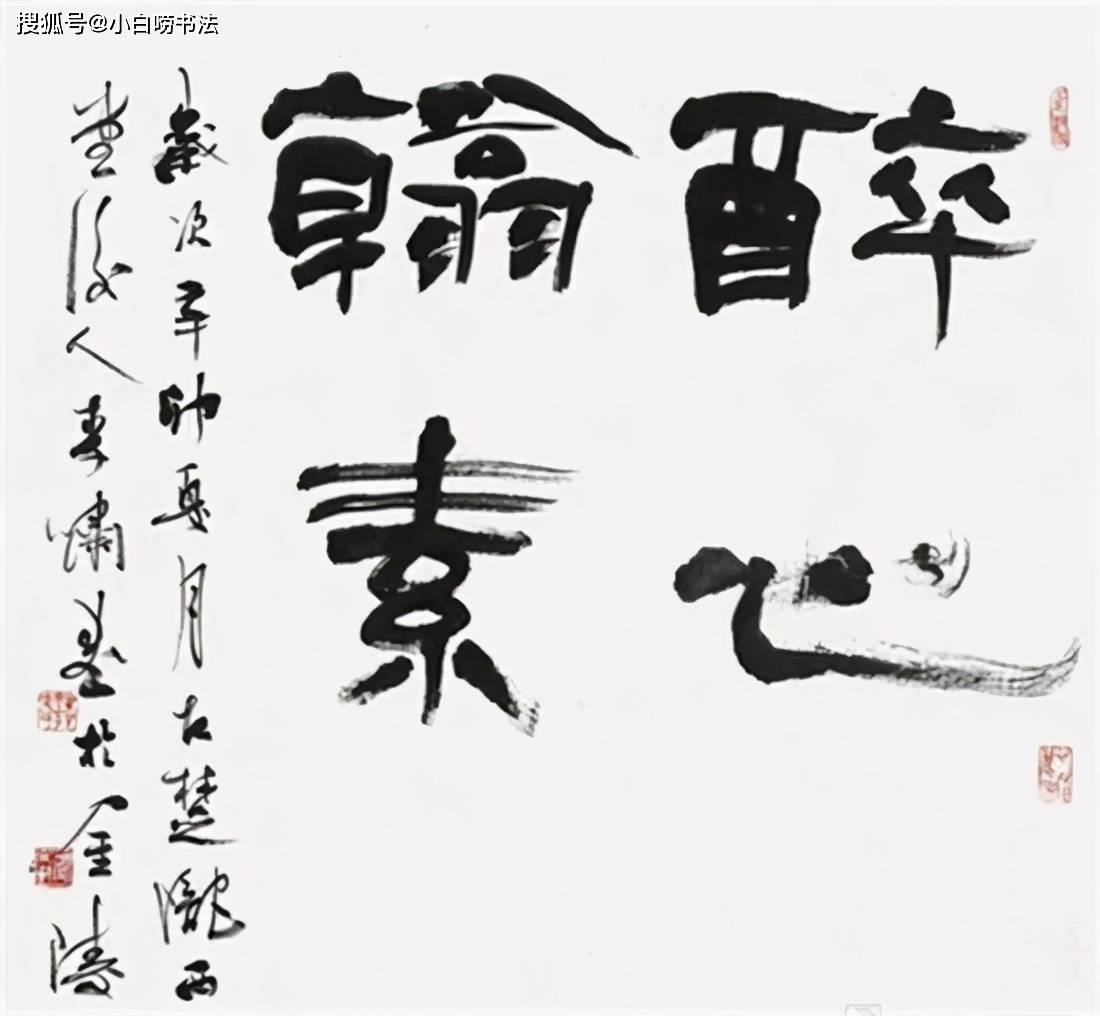 搜狐号@小白唠书法
醉心
翰素
歲次辛卯夏月古楚隴西
堂後人李嘯於金陵